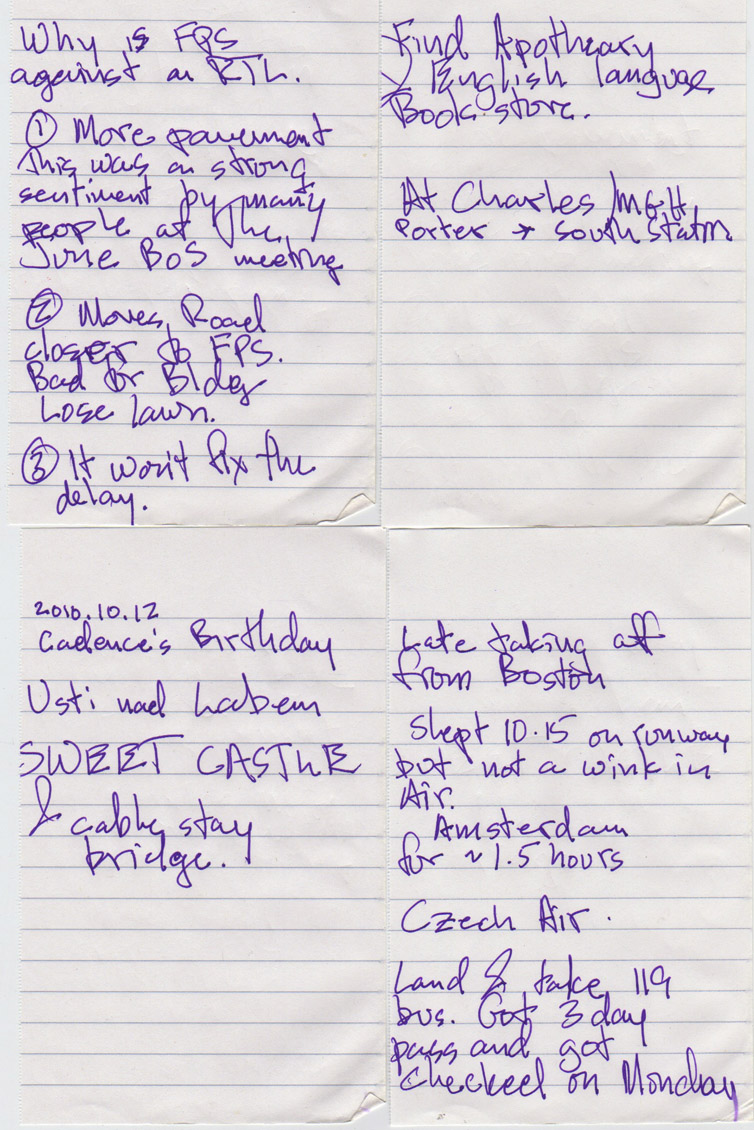 Why is FPS
against an RTL.
① More pavement
This was a strong
sentiment by many
people at the
June BoS meeting
② Moves Road
closer to FPS.
Bad for Bldg
Lose lawn.
③ It won't fix the
delay.
Find Apotheary
& English language
Book store.
At Charles/MGH
Porter → South Statn
2010.10.12
Cadence's Birthday
Usti nad Labem
SWEET CASTLE
& cable stay
bridge.
Late taking off
from Boston
Slept 10.15 on runway
but not a wink in
Air.
Amsterdam
for ~1.5 hours
Czech Air.
Land & take 119
bus. Got 3 day
pass and got
checked on Monday